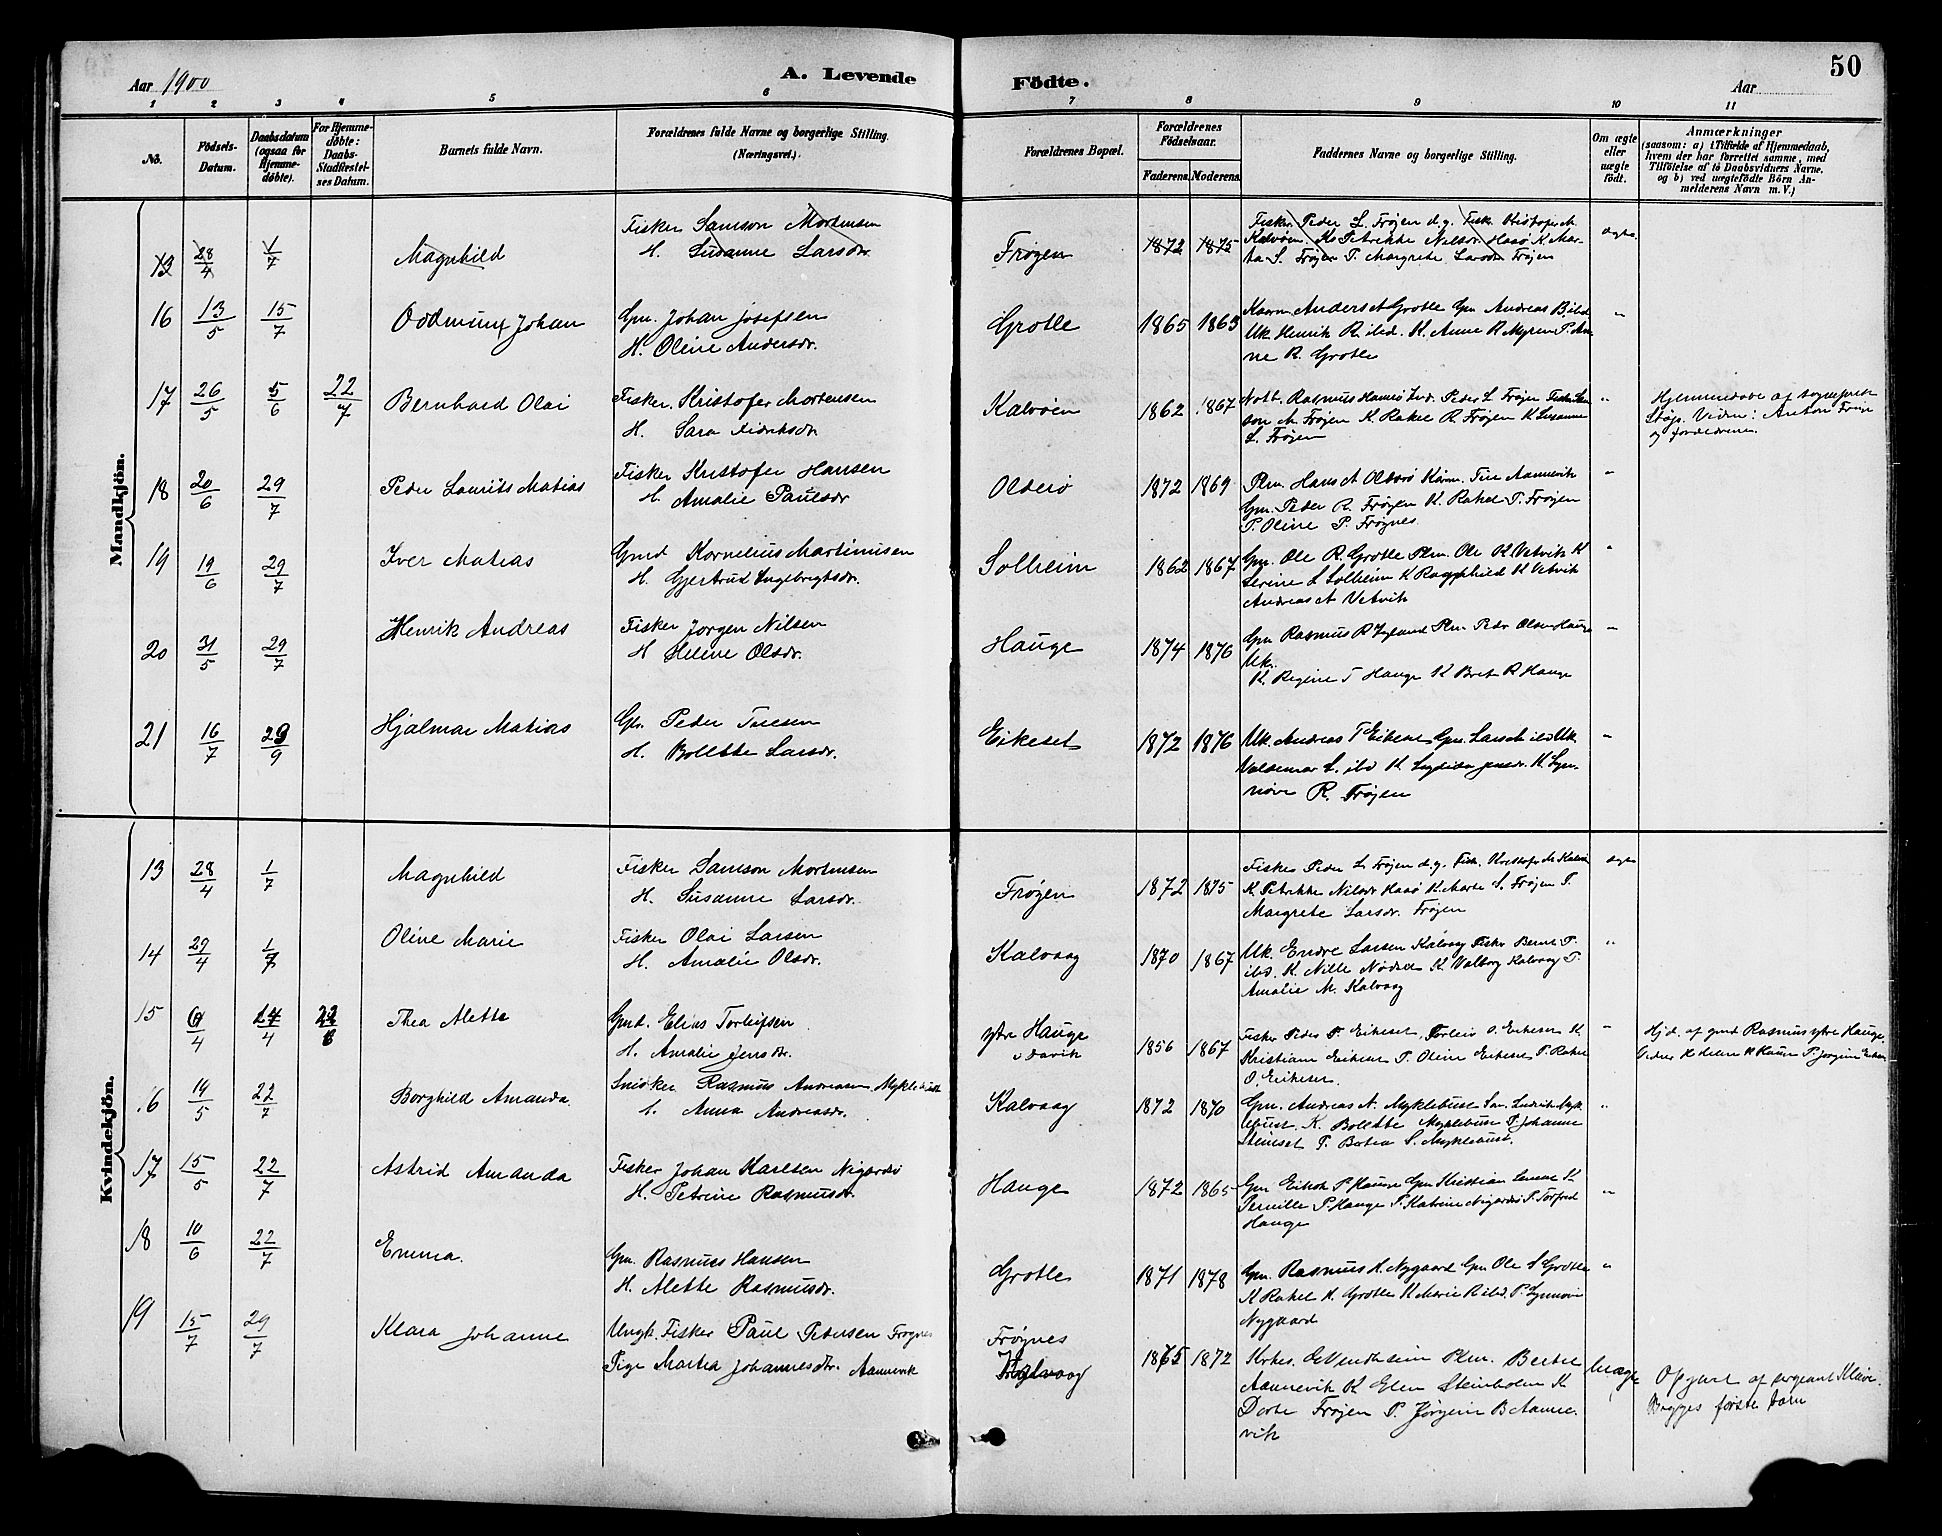 50
Aar 1900
A. Levende
Födte.
Aar
1 2 3 4 5 6 7 8 9 10 11
No.
Födsels-Datum.
Daabsdatum (ogsaa for Hjemme-døbte).
For Hjemme-døbte: Daabs-Stadfæstel-ses Datum.
Barnets fulde Navn.
Forældrenes fulde Navne og borgerlige Stilling. (Næringsvei.)
Forældrenes Bopæl.
Forældrenes Fødselsaar.
Faderens. Moderens.
Faddernes Navne og borgerlige Stilling.
Om ægte eller uægte født.
Anmærkninger
(saasom: a) i Tilfælde af Hjemmedaab, hvem der har forrettet samme, med Tilføielse af to Daabsvidners Navne, og b) ved uægtefødte Börn An-melderens Navn m. V.)
Mandkjön.
13 28/4 1/7 Magnhild
Fisker Samson Mortensen
H. Susanne Larsdr.
Frøyen 1872 1875
Fisker Peder L. Frøjen d.y. Fisk. Kristofer M
Kalvøen. K. Petrikke Nilsdr. Haaø K. Mar-
ta S. Frøjen P. Margrete Larsdr Frøjen
ægte
16 13/5 15/7 Oddmund Johan
Gm. Johan Josefsen
H. Oline Andersdr.
Grotle 1865 1863
Kaarm Anders A Grotle Gm Andreas B. ibd
Uk. Henrik R. ibd. K. Anne R Myren P. An-
ne R. Grotle
"
17 26/5 5/6 22/7 Bernhard Olai
Fisker. Kristofer Mortensen
H. Sara Didriksdr
Kalvøen 1862 1867
Peder L Frøjen
son M. Frøjen K Rakel R. Frøjen K Susanne
L. Frøjen
"
Hjemmedøbt af sogneprest
Støp. Vidner: Anton Frøjen
og forældrene.
18 20/6 29/7 Peder Laurits Matias
Fisker Kristofer Hansen
H. Amalie Paulsdr
Olderø 1872 1869
Plm. Hans A Olderø Kaarm. Aannevik
Gm. Peder R. Frøyen K. Rakel P. Frøyen
P. Oline P. Frøynes
"
19 19/6 29/7 Iver Matias
Gmd Kornelius Martinusen
H. Gjertrud Ingebregtsdr.
Solheim 1862 1867
Gm. Ole R. Grotle Plm. Ole K. Vetvik K
Serine L Solheim K Ragnhild K Vetvik
Andreas A Vetvik
"
20 31/5 29/7 Henrik Andreas
Fisker Jørgen Nilsen
H Helene Olsdr.
Hauge 1874 1876
Gm Rasmus R Plm. Pedr Olsen Hauge
Uk.
K. Regine T Hauge K Beret R Hauge
"
21 16/7 29/9 Hjalmar Matias
Gm. Peder
H. Bolette Larsdr.
Eikeset 1872 1876
Uk. Andreas T Eikeset Gm. Lars A ibd Uk
Valdemar L. ibd K K. Syn-
nøve R. Frøjen
"
Kvindekjön.
13 28/4 1/7 Magnhild
Fisker Samson Mortensen
H. Susanne Larsdr.
Frøyen 1872 1875
Fisker Peder L Frøjen d.y. Fisk. Kristofer M Kalvø
K. Petrikke Nilsdr Haaø K. Marta S. Frøjen P.
Margrete Larsdr. Frøjen
ægte
14 29/4 1/7 Oline Marie
Fisker Olai Larsen
H. Amalie Olsdr.
Kalvaag 1870 1867
Uk. Endre Larsen Kalvaag Fisker Bernt P.
ibd. K. Nille K Valborg Kalvaag P.
Amalie M. Kalvaag
"
15 Thea Alette
Gmd. Elias Torleifsen
H. Amalie Jensdtr.
ytre Hauge
i Davik 1856 1867
Fisker Peder P. Eikeset. Torleiv O. Eikeset K
Kristiane Eikeset P. Oline Eikeset P. Rakel
O. Eikeset.
"
Hjd. af gmd Rasmus ytre Hauge.
16 14/5 22/7 Borghild Amanda.
Snidker Rasmus Andreasen Myklebust
H. Anna Andreasdr.
Kalvaag 1872 1870
Gm. Andreas N. Myklebust Mykl-
ebust. K. Bolette Myklebust P. Johanne
Steinset P. Bertea S. Myklebust.
"
17 15/5 22/7 Astrid Amanda
Fisker Johan Karlsen Nigardsø
H. Petrine Rasmusdr.
Hauge 1872 1865
Gm P Hauge Gm Kristian K
Pernille P Hauge P. Katrine Nigardsø P. Torfred
Hauge
"
18 10/6 22/7 Emma.
Gm. Rasmus Hansen
H. Alette Rasmusdr.
Grotle 1871 1878
Gm. Rasmus K. Nygaard Gm Ole S Grotle
K Rakel K. Grotle K Marie R ibd. P. Synnøve
Nygaard
"
19 15/7 29/7 Klara Johanne
Ungk. Fisker Paul Petersen Frøynes
Pige Martea Johannesdtr. Aannevik
Frøynes
Kalvaag 1865 1872
Plm. Bertel
Aannevik K Elen Steinholm K
Dorte Frøjen P. Jørgine B Aanne-
vik
Uægte
Opgivet af sergeant Klaus.
Begges første barn